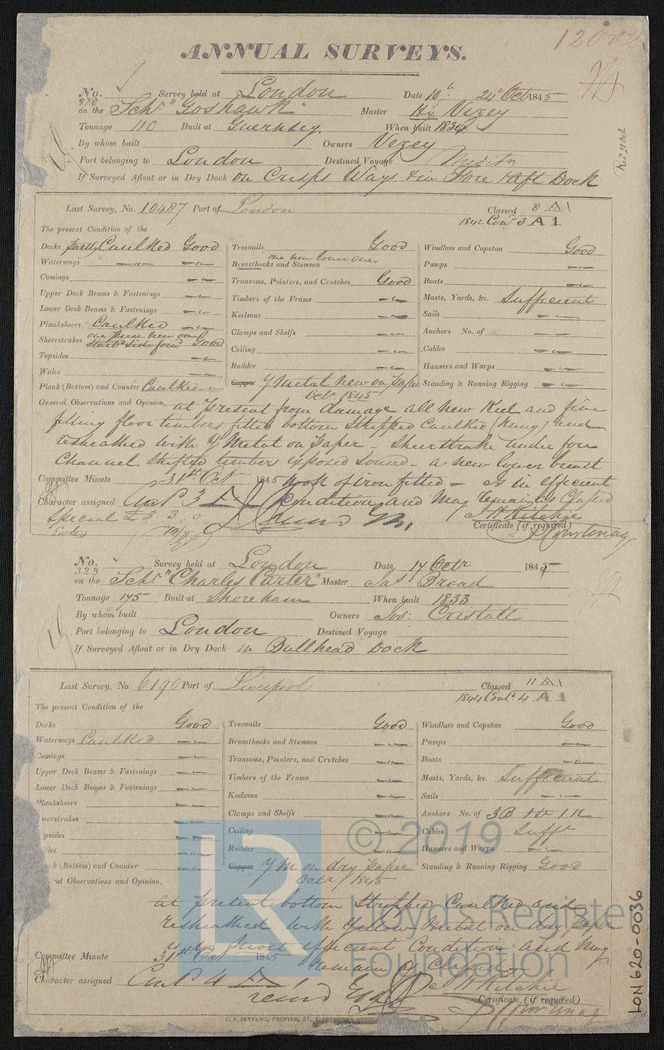 ANNUAL SURVEYS.
No. 270 Survey held at London Date 10th 24 Octr 1845
on the Schr "Goshawk" Master Hy Vezey
Tonnage 110 Built at Guernsey When built 1834
By whom built Owners Vezey
Port belonging to London Destined Voyage
If Surveyed Afloat or in Dry Dock on Crisps Ways & in Dock
Last Survey, No. 10487 Port of London Classed 8 A1
1842 Cont 3 A 1
The present Condition of the
Decks Partly Caulked Good Treenails Good Windlass and Capstan Good
Waterways Breasthooks and Stemson one new lower one Pumps
Comings Transoms, Pointers, and Crutches Good Boats
Upper Deck Beams & Fastenings Timbers of the Frame Masts, Yards, &c. Sufficient
Lower Deck Beams & Fastenings Keelsons Sails
Planksheers Caulked Clamps and Shelfs Anchors No. of
Sheerstrakes Good Ceiling Cables
Topsides Rudder Hausers and Warps
Wales Copper Y Metal new on Paper Standing & Running Rigging
Plank (Bottom) and Counter Caulked Octr 1845
General Observations and Opinion, at present from damage all new Keel and five
filling floor timbers fitted bottom stripped Caulked and
resheathed with Y Metal on Paper - Sheerstrake under fore
Channel shifted timbers exposed sound - a new lower breast
Committee Minute 31st Oct 1845 hook of iron fitted - is in efficient
Character assigned Cont 3 A 1 Condition and May remain as Classed
Special £3.3.0 J H Ritchie
Certificate (if required)
Courtenay
No. 323 Survey held at London Date 17 Octr 1845
on the Schr "Charles Carter" Master Jas Broad
Tonnage 175 Built at Shoreham When built 1833
By whom built Owners Jos: Cristall
Port belonging to London Destined Voyage
If Surveyed Afloat or in Dry Dock in Bullhead Dock
Last Survey, No 6190 Port of Liverpool Classed 11 A1
1844 Cont 4 A 1
The present Condition of the
Decks Good Treenails Good Windlass and Capstan Good
Waterways Caulked Breasthooks and Stemson Pumps
Comings Transoms, Pointers, and Crutches Boats
Upper Deck Beams & Fastenings Timbers of the Frame Masts, Yards, &c. Sufficient
Lower Deck Beams & Fastenings Keelsons Sails
Planksheers Clamps and Shelfs Anchors No. of 3B 1 St 1 K
erstrakes Ceiling Cables Sufft
psides Rudder Hausers and Warps
les Copper Y M on dry Paper Standing & Running Rigging Good
k (Bottom) and Counter Octr 1845
al Observations and Opinion,
at present bottom Stripped Caulked and
resheathed with Yellow Metal on dry Paper
efficient Condition and May
Committee Minute 31st Oct 1845 remain as Classed
Character assigned Cont 4 A 1 J H Ritchie
Certificate (if required)
Courtenay
LON620-0036
© 2019
LR
Lloyd's Register
Foundation